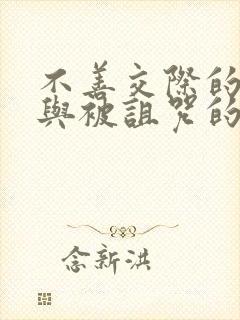 不善交際的
與被詛咒的
念新洪